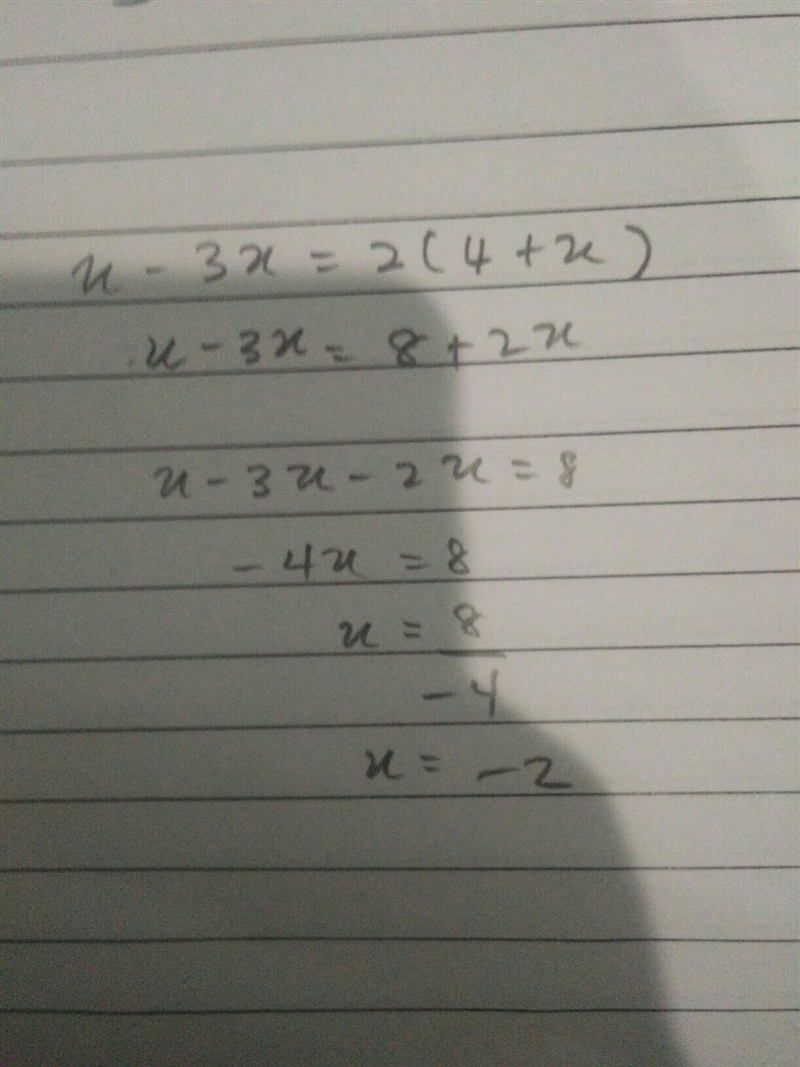 x - 3x = 2(4 + x)
x - 3x = 8 + 2x
x - 3x - 2x = 8
- 4x = 8
x = 8
- 4
x = - 2